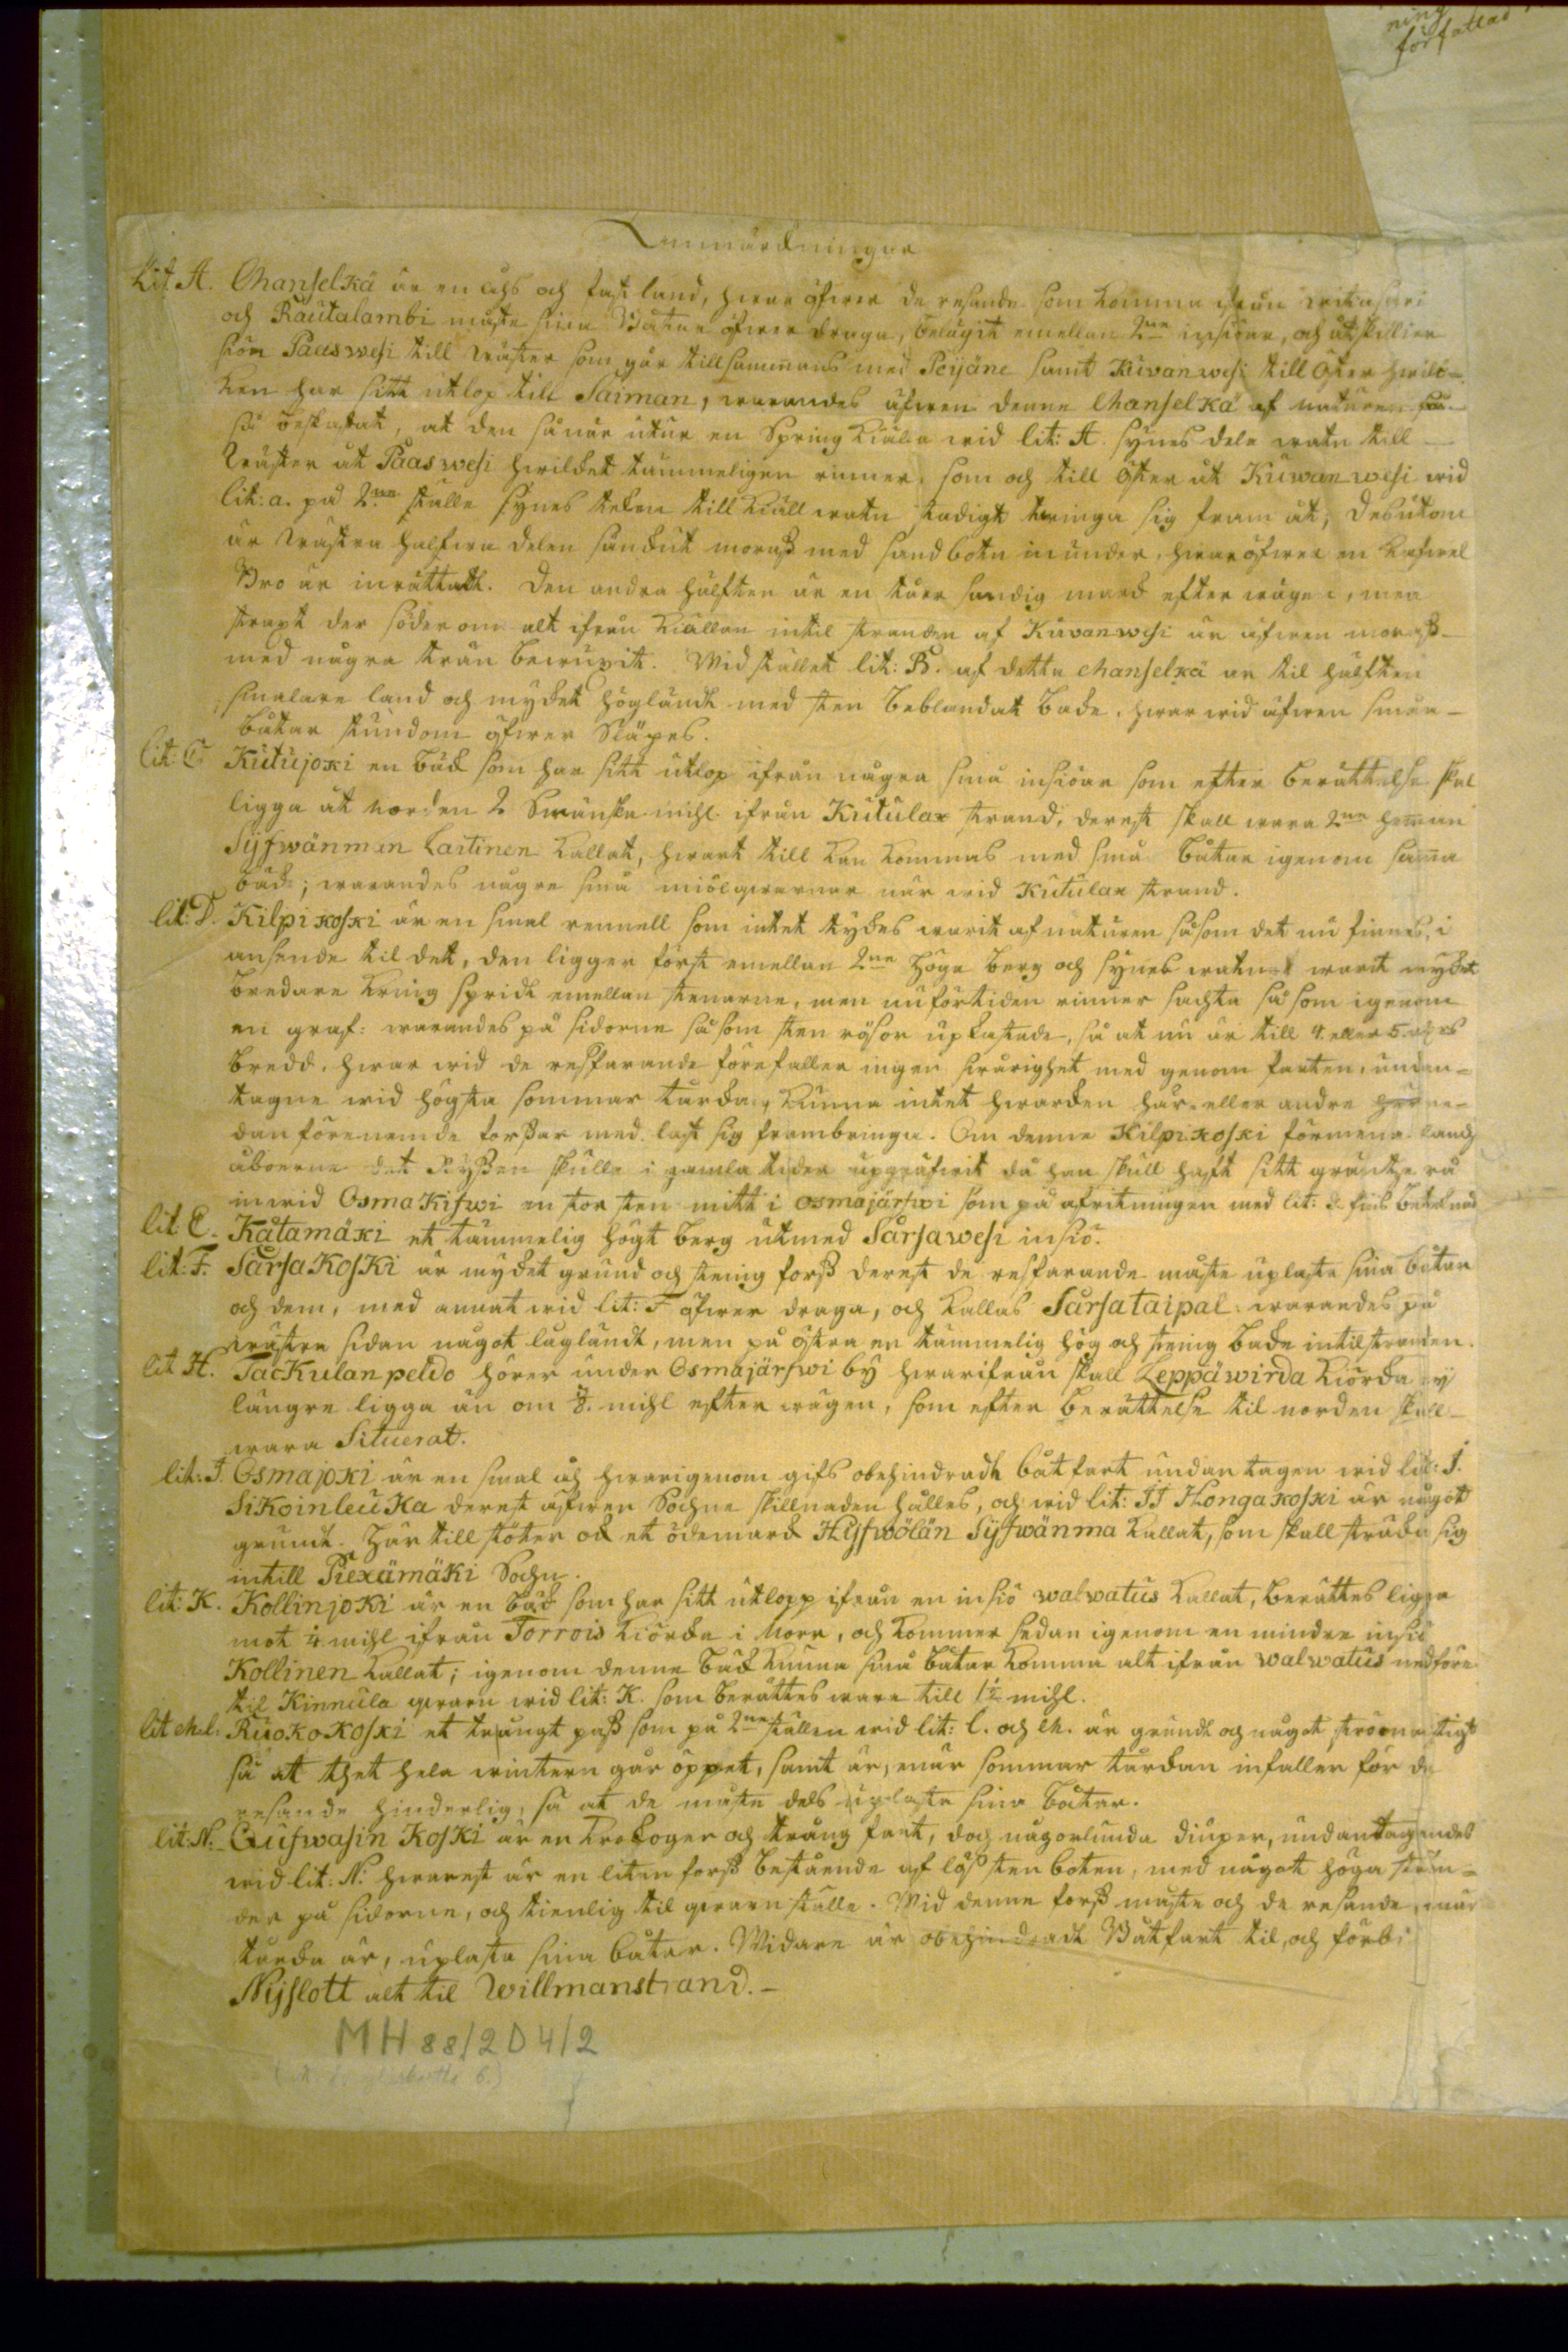 ning
författad
Anmärckningar
Lit A. Manselkä är en åhs och fast land, hwar öfwer de resande som komma ifrån Witasari
och Rautalambi måste sina Båtar öfwer draga, belägit emellan 2ne insiöar, och åtskillier
siön Paaswesi till Wäster som går tillsammans med Peijäne samt Kuvanwesi till Öster hwilc-
ken har sitt utlop till Saiman, warandes äfwen denne Manselkä af naturen så-
så beskafat, at den så när utur en Spring kiälla wid lit: A. synes dela watn till
Wäster åt Paaswesi hwilcket tämmeligen rinner, som och till öster åt Kuwanwesi wid
lit: a. på 2ne ställe synes teken till kiäll watn stadigt twinga sig fram åt; Desutom
är Wästra halfwa delen sänckut morass med sandbotn inunder, hwaröfwer en Kafwel
Bro är inrättatt. Den andra hälften är en torr sandig marck efter wägen, men
strapt der söder om alt ifrån kiällan intil stranden af Kuvanwesi är äfwen morass
med några trän bewuxit. Wid stället lit: B. af detta Manselkä är til hälften
smalare land och mycket högländt med sten beblandat backe, hwar wid äfwen smärre
båtar stundom öfwer Släpas.
lit: C Kutujoki en bäck som har sitt utlop ifrån några små insiöar som efter berättelse skal
ligga åt norden 2 Swänska mihl ifrån Kutulax strand, derest skall wara 2ne heman
Syfwänman Laitinen kallat, hwart till kan kommas med små båtar igenom sama
bäck; warandes någre små miölqwarnar när wid Kutulax strand.
lit: D. Kilpikoski är en smal rennell som intet tyckes warit af naturen såsom det nu finnes, i
anseende til det, den ligger först emellan 2ne höga berg och synes watnet warit mycket
bredare kring spridt emellan stenarne, men nuförtiden rinner sachta såsom igenom
en graf: warandes på sidorne såsom sten rösor upkastade, så at nu är till 4. eller 5. alnrs
bredd, hwar wid de resfarande förefaller ingen swårighet med genom farten, undan-
tagne wid högsta sommar torckan, kunna intet hwarcken här eller andre herne-
dan förenemde forssar med last sig frambringa. Om denne Kilpikoski förmena lands
åboerne det Ryssen skulle i gamla tider upgräfwit då han skull haft sitt gräntze rå
in wid Osmakifwi en stor sten mitt i osmajärfwi som på afritningen med lit: d fins betecknad
lit E. Kätamäki et tämmelig högt berg utmed Särsawesi insiö.
lit: F. SärsaKosKi är mycket grund och stenig forss derest de resfarande måste uplasta sina båtar
och dem, med annat wid lit: F öfwer draga, och kallas Särsataipal: warandes på
wästra sidan något lågländt, men på östra en tämmelig hög och stenig backe intil stranden.
lit H. TacKulanpeldo hörer under Osmajärfwi by hwarifrån skall Leppäwirda kiörcka ey
längre ligga än om 3/8. mihl efter wägen, som efter berättelse til norden skall
wara Situerat.
lit: I. Osmajoki är en smal åh hwarigenom gifs obehindradt båtfart undantagen wid lit: I.
SiKoinleuKa derest äfwen Sochne skillnaden hålles, och wid lit: II Hongakoski är något
grundt. Här till stöter ock et ödemarck Hyfwölän Syfwänma kallat, som skall sträcka sig
intill PiexämäKi Sochn.
lit: K. KollinjoKi är en bäck som har sitt utlopp ifrån en insiö walwatus kallat, berättes ligga
mot 1/4 mihl ifrån Jorrois kiörcka i Norr, och kommer sedan igenom en mindre insiö
Kollinen kallat; igenom denne bäck kunna små båtar komma alt ifrån walwatus nedföre
til Kinnula qwarn wid lit: K. som berättes wara till 1½ mihl.
lit M.L: RuokoKoski et trångt pass som på 2ne ställen wid lit: L. och M. är grundt och något strömachtigt
så at thet hela wintern går öppet, samt är, enär sommar torckan infaller för de
resande hinderlig, så at de måste dels uplasta sina båtar.
lit: N. Quifwasin KosKi är en krokoger och trång fart, doch någorlunda diuper, undantagandes
wid lit: N: hwarest är en liten forss bestående af löss sten boten, med något höga strän-
der på sidorne, och tienlig til qwarn ställe. Wid denne forss måste och de resande, enär
torcka är, uplasta sina båtar. Widare är obehindradt Båtfart til, och förbi
Nyslott alt til Willmanstrand.-
MH 88/2 D 4/2